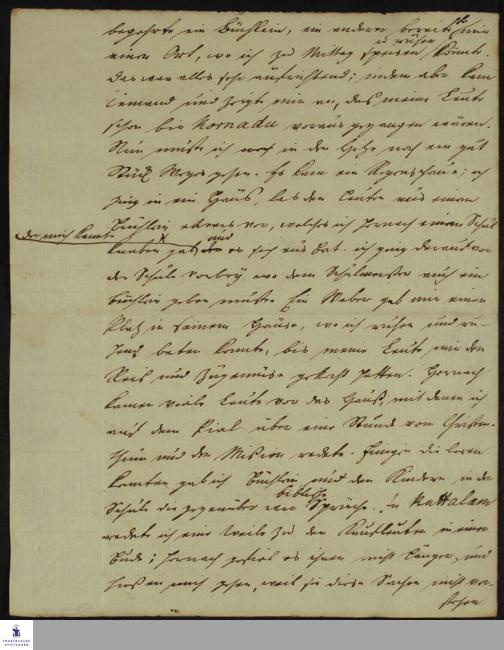 begehrte ein Büchlein, ein anderer bereitete mir
einen Ort, wo ich zu Mittag zu ruhen speisen könnte.
Das war alles sehr aufrichtend; indem aber kam
jemand und zeigte mir an, daß meine Leute
schon bis Kornadu voraus gegangen wären.
Nun mußte ich noch in der Hitze noch ein gut
Stück Weges gehen. Es kam ein Regenschauer; ich
ging in ein Haus, las den Leuten aus einem
Büchlein etwas vor, welches ich hernach einem Schul
der mich kannte
knaben gab und es sich aus bat. ich ging darauf vor
der Schule vorbey, wo dem Schulmeister auch ein
Büchlein geben mußte. Ein Weber gab mir einen
Platz in seinem Hause, wo ich ruhen und
bis meine Leute mir den
Reis und Zugemüse gekocht hatten. Hernach
kamen viele Leute vor das Haus, mit denen ich
auf dem Pial über eine Stunde vom Christen-
thum und der Mission redete. Einigen die lesen
konnten gab ich Büchlein und den Kindern in der
Schule die gegenüber war biblische Sprüche. In Kuttalam
redete ich eine Weile zu den Kaufleuten in einer
Bude; hernach gefiel es ihnen nicht länger, und
hießen mich gehen, weil sie diese Sachen nicht ver-
stehen
FRANCKESCHE
STIFTUNGEN